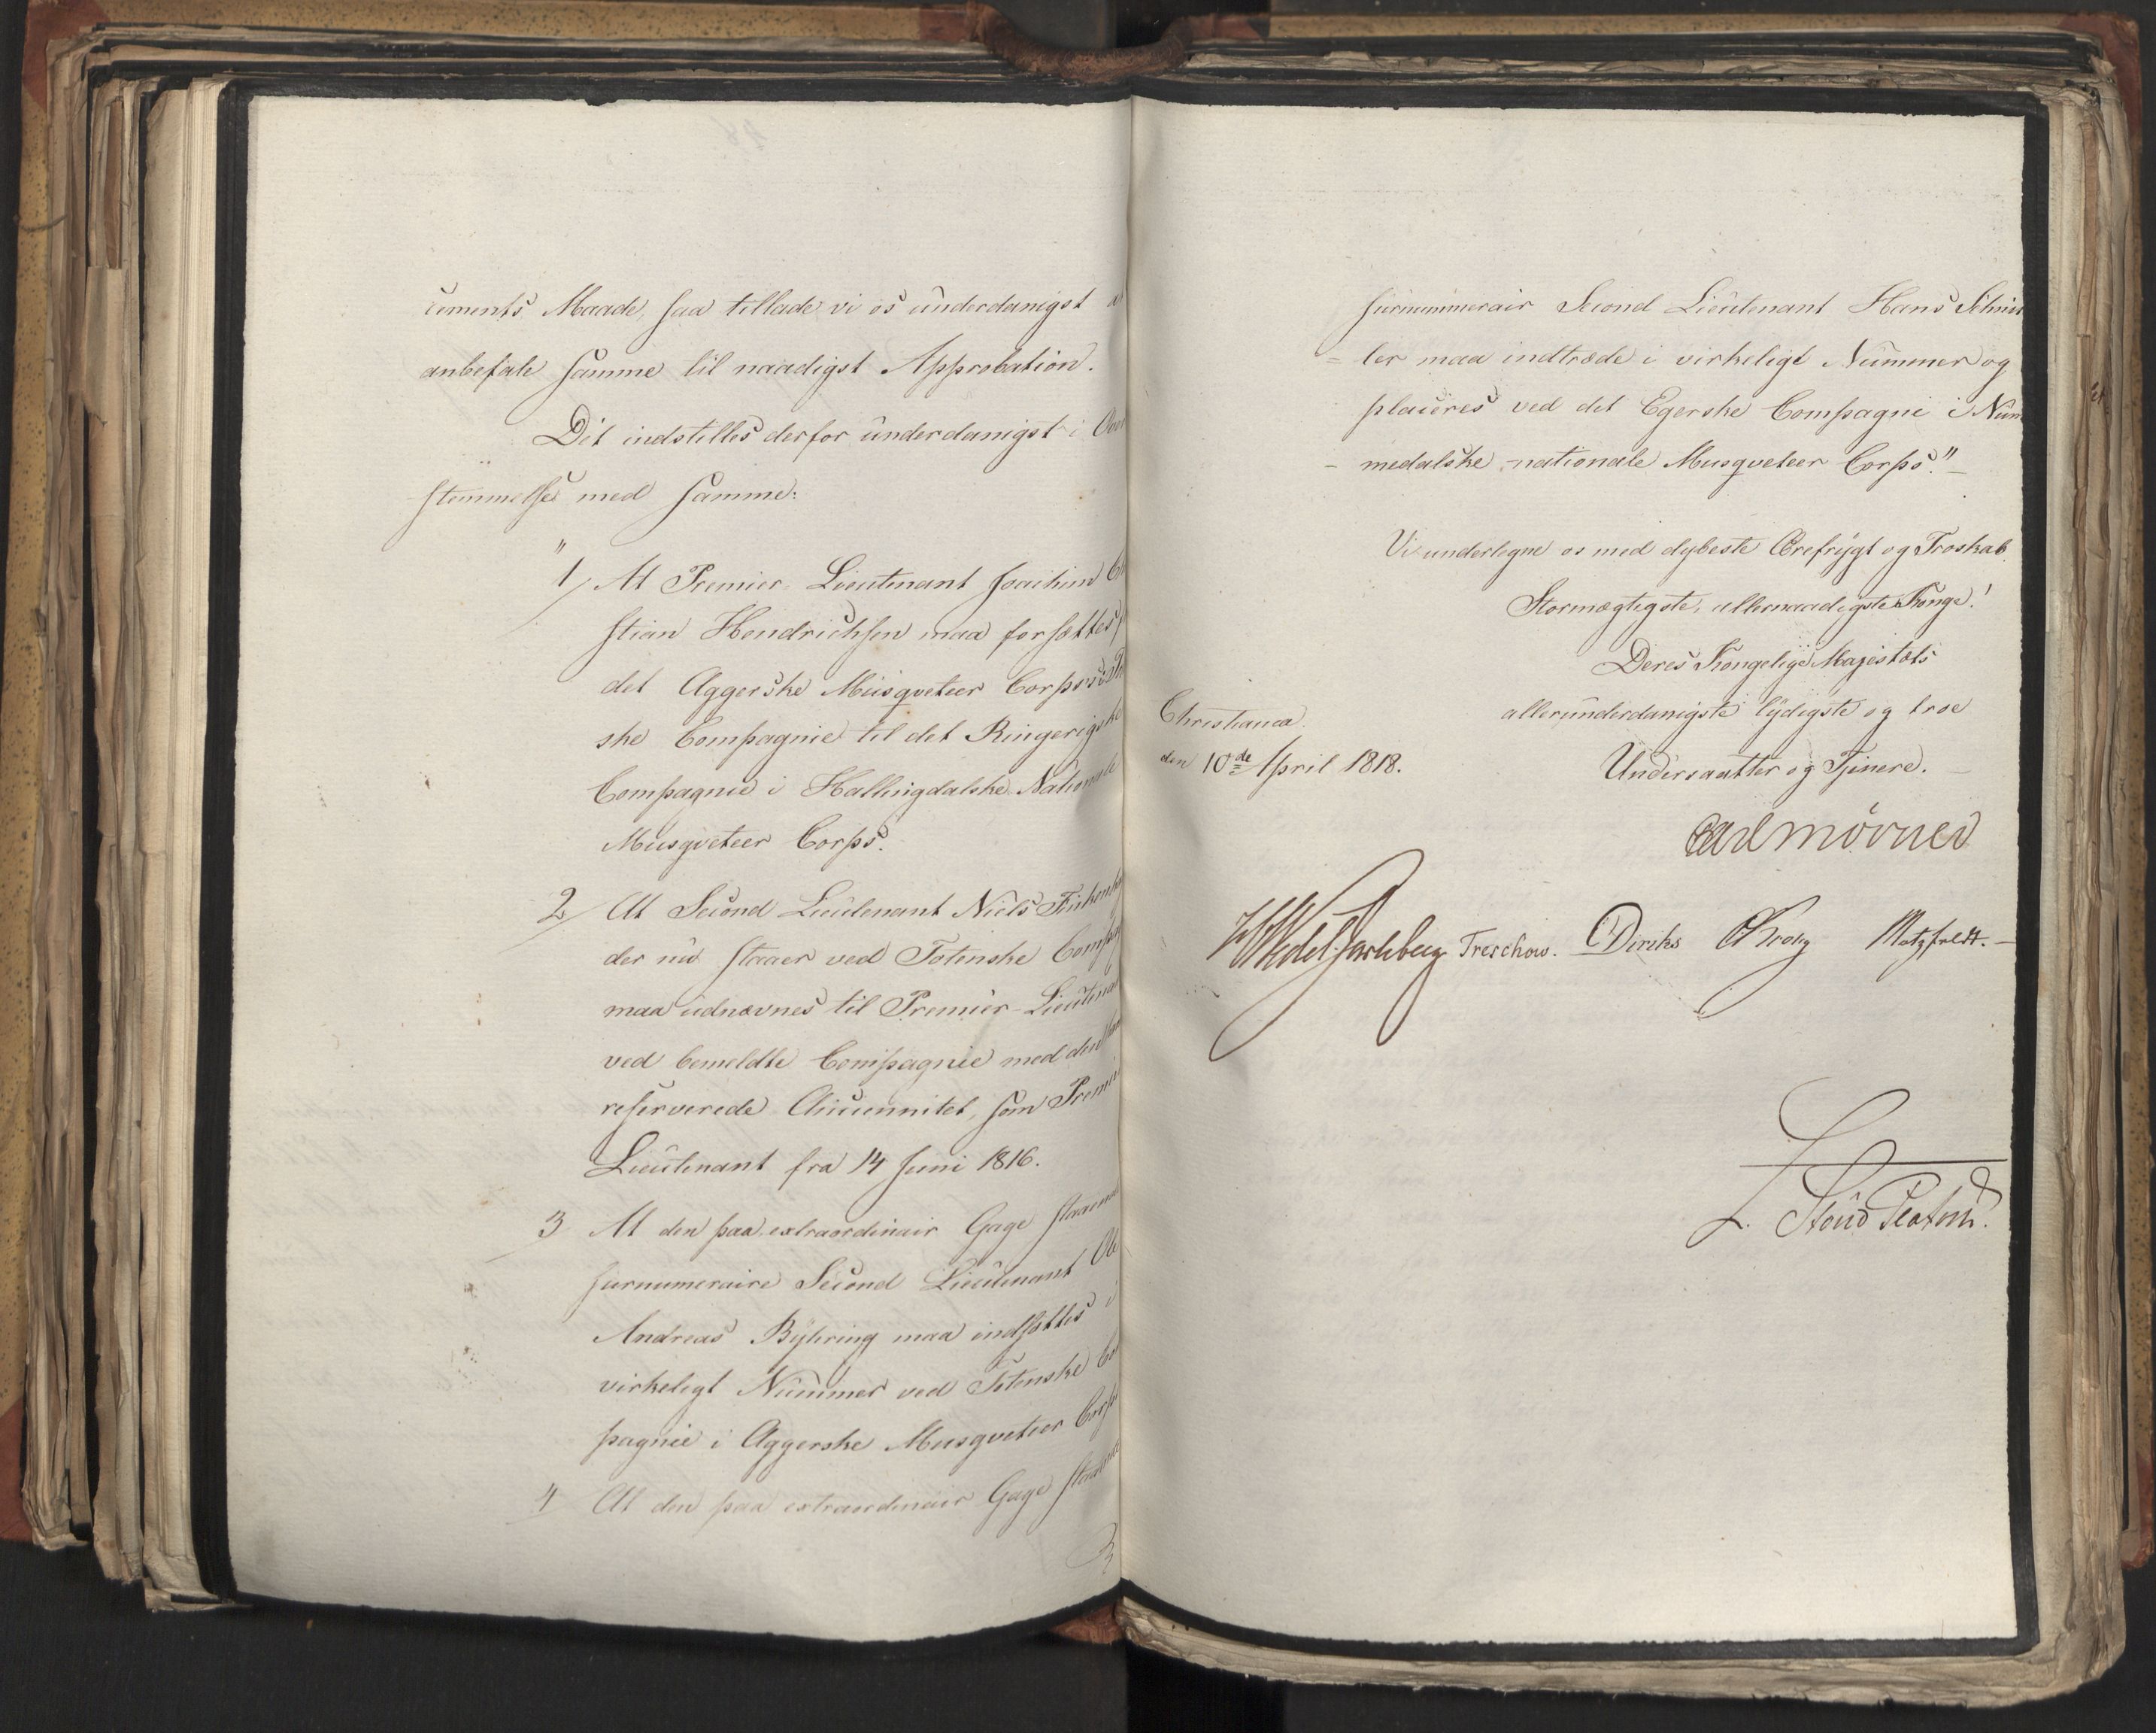 cuments Maade, saa tillade vi os underdanigst
anbefale samme til naadigst Approbation.
Det indstilles derfor underdanigst i
stemmelse med samme:
"1/ At Premier-Lieutenant Joachim
stian Hendrichsen maa forsættes
det Aggerske Musqveteer Corpses
ske Compagnie til det Ringerigske
Compagnie i Hallingdalske Nationale
Musqveteer Corps.
2/ At Second Lieutenant Niels
der nu staaer ved Totenske Compag
maa udnævnes til Premier-Lieutenant
ved bemeldte Compagnie med den
reserverede Anciennitet, som Premier
Lieutenant fra 14 Juni 1816.
3 At den paa extraordinair Gage staaende
surnumeraire Second Lieutenant Ole
Andreas Bÿhring maa indsættes i
virkeligt Nummer ved Totenske Com
pagnie i Aggerske Musqveteer Corps
4 At den paa extraordinair Gage staaende
surnummerair Second Lieutenant Hans Schnit
= ler maa indtræde i virkeligt Nummer og
placeres ved det Egerske Compagnie i Num
- medalske nationale Musqveteer Corps."
Vi underlegne os med dybeste Ærefrÿgt og Troskab
Stormægtigste, allernaadigste Konge!
Deres Kongelige Majestæts
allerunderdanigste lÿdigste og troe
Christiania
den 10de April 1818.
Undersaatter og Tjenere.
Carl Mörner
Wedel Jarlsberg Treschow. Diriks CKrohg Motzfeldt.
L. Stoud Platou